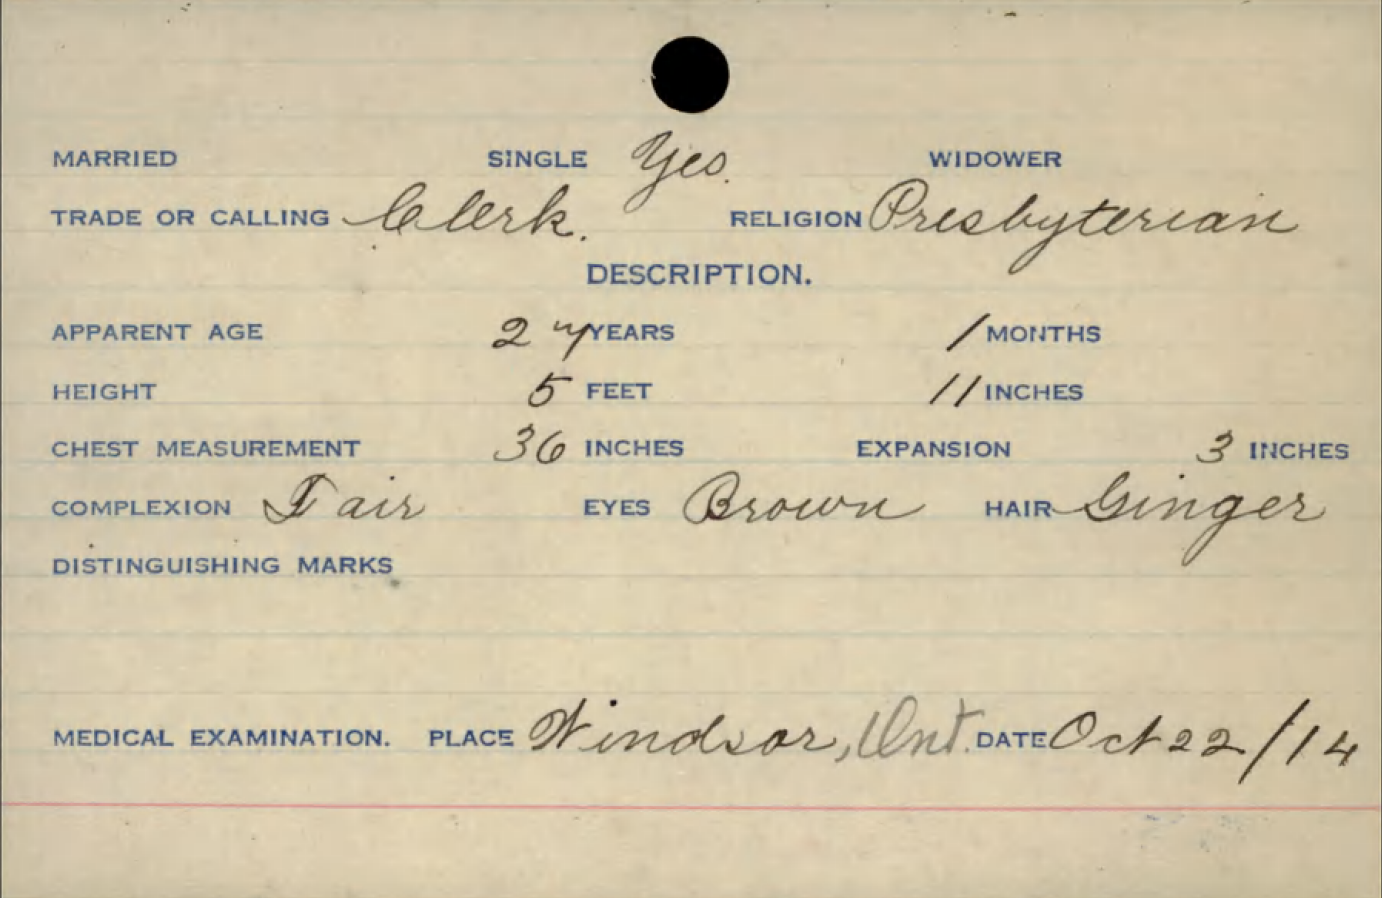 MARRIED SINGLE Yes. WIDOWER
TRADE OR CALLING Clerk. RELIGION Presbyterian
DESCRIPTION.
APPARENT AGE 27 YEARS 1 MONTHS
HEIGHT 5 FEET 11 INCHES
CHEST MEASUREMENT 36 INCHES EXPANSION 3 INCHES
COMPLEXION Fair EYES Brown HAIR Ginger
DISTINGUISHING MARKS
MEDICAL EXAMINATION. PLACE Windsor, Ont. DATE Oct 22/14